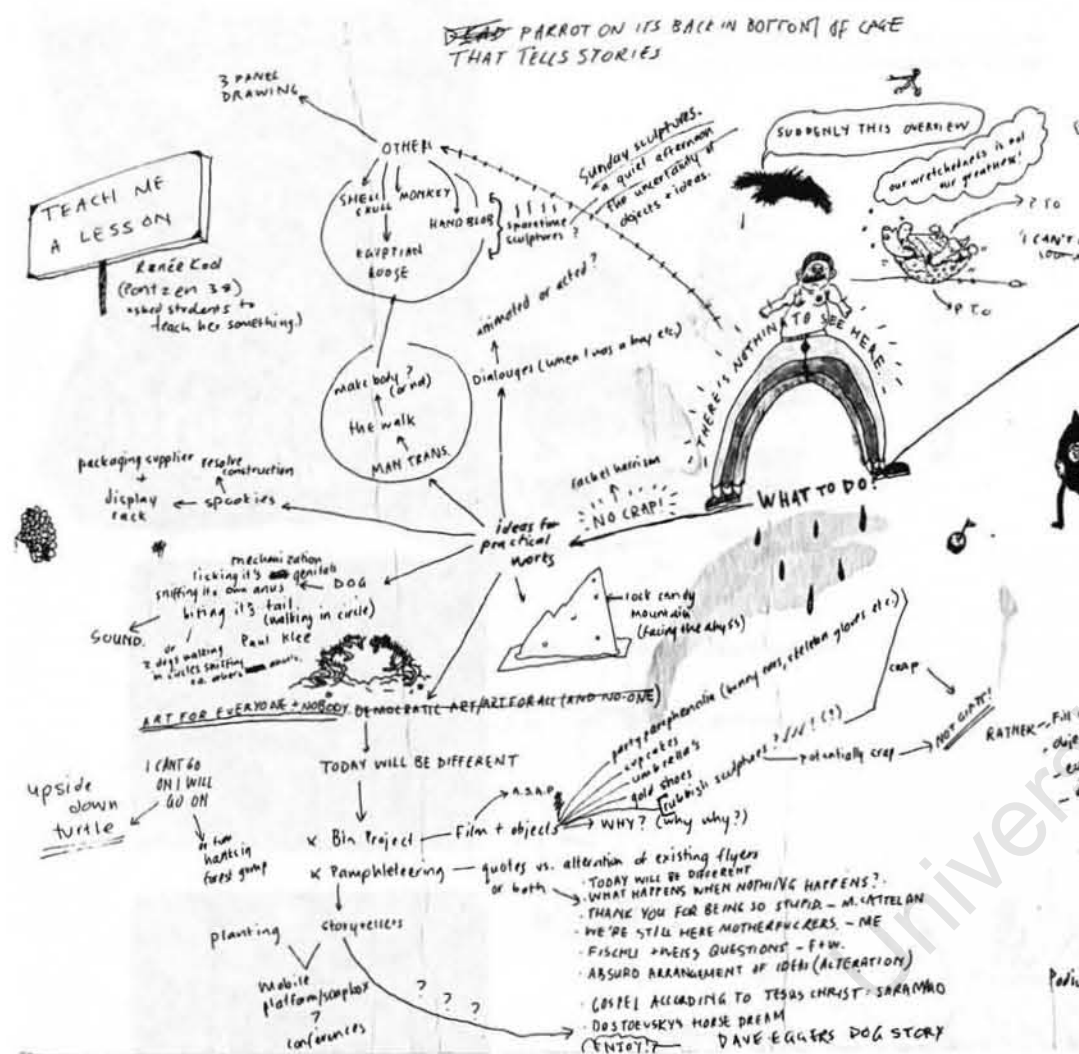 DEAD PARROT ON ITS BACK IN BOTTOM OF CAGE
THAT TELLS STORIES
3 PANEL
DRAWING
OTHER
SHELL
SKULL
MONKEY
HAND BLOB
EGYPTIAN
GOOSE
sparetime
sculptures?
Sunday sculptures.
a quiet afternoon
the uncertainty of
objects + ideas.
SUDDENLY THIS OVERVIEW
our wretchedness is not
our greatness!
? TO
P TO
'I CAN'T
TEACH ME
A LESSON
Renée Kool
asked students to
teach her something.)
animated or acted?
Dialouges (when I was a boy etc)
make body?
(arnd)
the walk
MAN TRANS.
THERE'S NOTHING TO SEE HERE
WHAT TO DO?
rachel harrison
NO CRAP!
packaging supplier
+
display
rack
resolve
construction
spookies
ideas for
practical
works
mechanization
licking it's genitals
sniffing its own anus
DOG
biting it's tail
(walking in circle)
SOUND.
or
2 dogs walking
in circles sniffing
Paul Klee
rock candy
mountain
(facing the abyss)
ART FOR EVERYONE + NOBODY DEMOCRATIC ART/ART FOR ALL (AND NO-ONE)
I CANT GO
ON I WILL
GO ON
upside
down
turtle
TODAY WILL BE DIFFERENT
party paraphenalia (bunny ears, skeleton gloves etc.)
cupcakes
umbrella's
gold shoes
rubbish sculptures?
(?)
CRAP
potentially crap
NOT GIANT!
RATHER
A.S.A.P
x Bin Project
Film + objects
WHY? (why why?)
x Pamphleteering
quotes vs. alteration of existing flyers
or both
· TODAY WILL BE DIFFERENT
· WHAT HAPPENS WHEN NOTHING HAPPENS?
· THANK YOU FOR BEING SO STUPID. – M. CATTELAN
· WE'RE STILL HERE MOTHERFUCKERS. – ME
· FISCHLI + WEISS QUESTIONS – F+W.
· ABSURD ARRANGEMENT OF IDEAS (ALTERATION)
· GOSPEL ACCORDING TO JESUS CHRIST. SARAMAO
· DOSTOEVSKY'S HORSE DREAM
(ENJOY!?
DAVE EGGERS DOG STORY
planting
storytellers
mobile
platform/soapbox
?
conferences
? ? ?
Univers